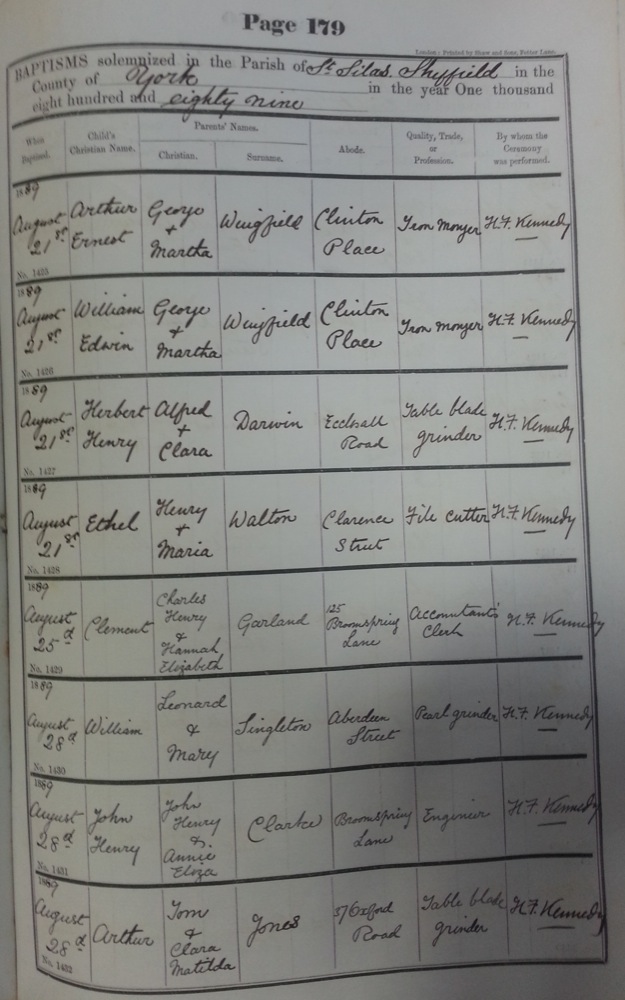 Page 179
London: Printed by Shaw and Sons, Fetter Lane.
BAPTISMS solemnized in the Parish of St Silas. Sheffield in the
County of York in the year One thousand
eight hundred and eighty nine
When Baptized.
Child's Christian Name.
Parents' Names.
Christian.
Surname.
Abode.
Quality, Trade, or Profession.
By whom the Ceremony was performed.
1889
August 21st
No. 1425
Arthur Ernest
George + Martha
Wingfield
Clinton Place
Iron monger
H.F. Kennedy
1889
August 21st
No. 1426
William Edwin
George + Martha
Wingfield
Clinton Place
Iron monger
H.F. Kennedy
1889
August 21st
No. 1427
Herbert Henry
Alfred + Clara
Darwin
Ecclsall Road
Table blade grinder
H.F. Kennedy
1889
August 21st
No. 1428
Ethel
Henry + Maria
Walton
Clarence Street
File cutter
H.F. Kennedy
1889
August 25d
No. 1429
Clement
Charles Henry & Hannah Elizabeth
Garland
125 Broomspring Lane
Accountant's Clerk
H.F. Kennedy
1889
August 28d
No. 1430
William
Leonard & Mary
Singleton
Aberdeen Street
Pearl grinder
H.F. Kennedy
1889
August 28d
No. 1431
John Henry
John Henry & Annie Eliza
Clarke
Broomspring Lane
Engineer
H.F. Kennedy
1889
August 28d
No. 1432
Arthur
Tom & Clara Matilda
Jones
37 Oxford Road
Table blade grinder
H.F. Kennedy